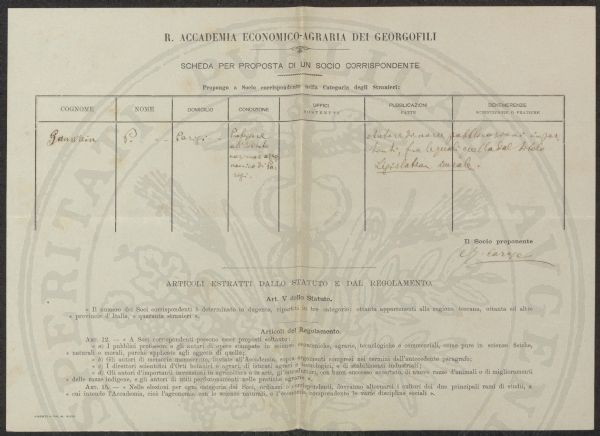 R. ACCADEMIA ECONOMICO-AGRARIA DEI GEORGOFILI
SCHEDA PER PROPOSTA DI UN SOCIO CORRISPONDENTE
Propongo a Socio corrispondente nella Categoria degli Stranieri:
COGNOME
NOME
DOMICILIO
CONDIZIONE
UFFICI
SOSTENUTI
PUBBLICAZIONI
FATTE
BENEMERENZE
SCIENTIFICHE O PRATICHE
P.
Parigi
Autore di varie pubblicazioni
fra le quali quella dal titolo
Législation rurale.
Il Socio proponente
ARTICOLI ESTRATTI DALLO STATUTO E DAL REGOLAMENTO.
Art. V dello Statuto.
« Il numero dei Soci corrispondenti è determinato in dugento, ripartiti in tre categorie: ottanta appartenenti alla regione toscana, ottanta ed altre
« provincie d'Italia, e quaranta stranieri ».
Articoli del Regolamento.
ART. 12. — « A Soci corrispondenti possono esser proposti soltanto:
« a) I pubblici professori e gli autori di opere stampate in scienze economiche, agrarie, tecnologiche e commerciali, come pure in scienze fisiche,
« naturali o morali, purchè applicate agli oggetti di quelle;
« b) Gli autori di memorie manoscritte, inviate all'Accademia, sopra argomenti compresi nei termini dell'antecedente paragrafo;
« c) I direttori scientifici d'Orti botanici o agrari, di istituti agrari e tecnologici, o di stabilimenti industriali;
« d) Gli autori d'importanti invenzioni in agricoltura o in arte, gl'introduttori, con buon successo accertato, di nuove razze d'animali o di miglioramenti
« delle razze indigene, e gli autori di utili perfezionamenti nelle pratiche agrarie ».
« Nelle elezioni per ogni categoria dei Soci, ordinari o corrispondenti, dovranno alternarsi i cultori dei due principali rami di studii, a
« cui intende l'Accademia, cioè l'agronomia con le scienze naturali, o l'economia, comprendente le varie discipline sociali ».